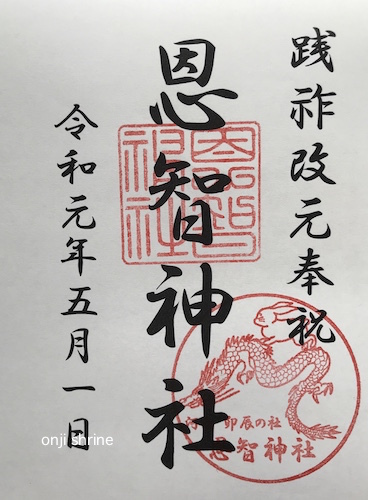 践祚改元奉祝
恩智神社
恩智神社
卯辰の社
恩智神社
令和元年五月一日
onji shrine